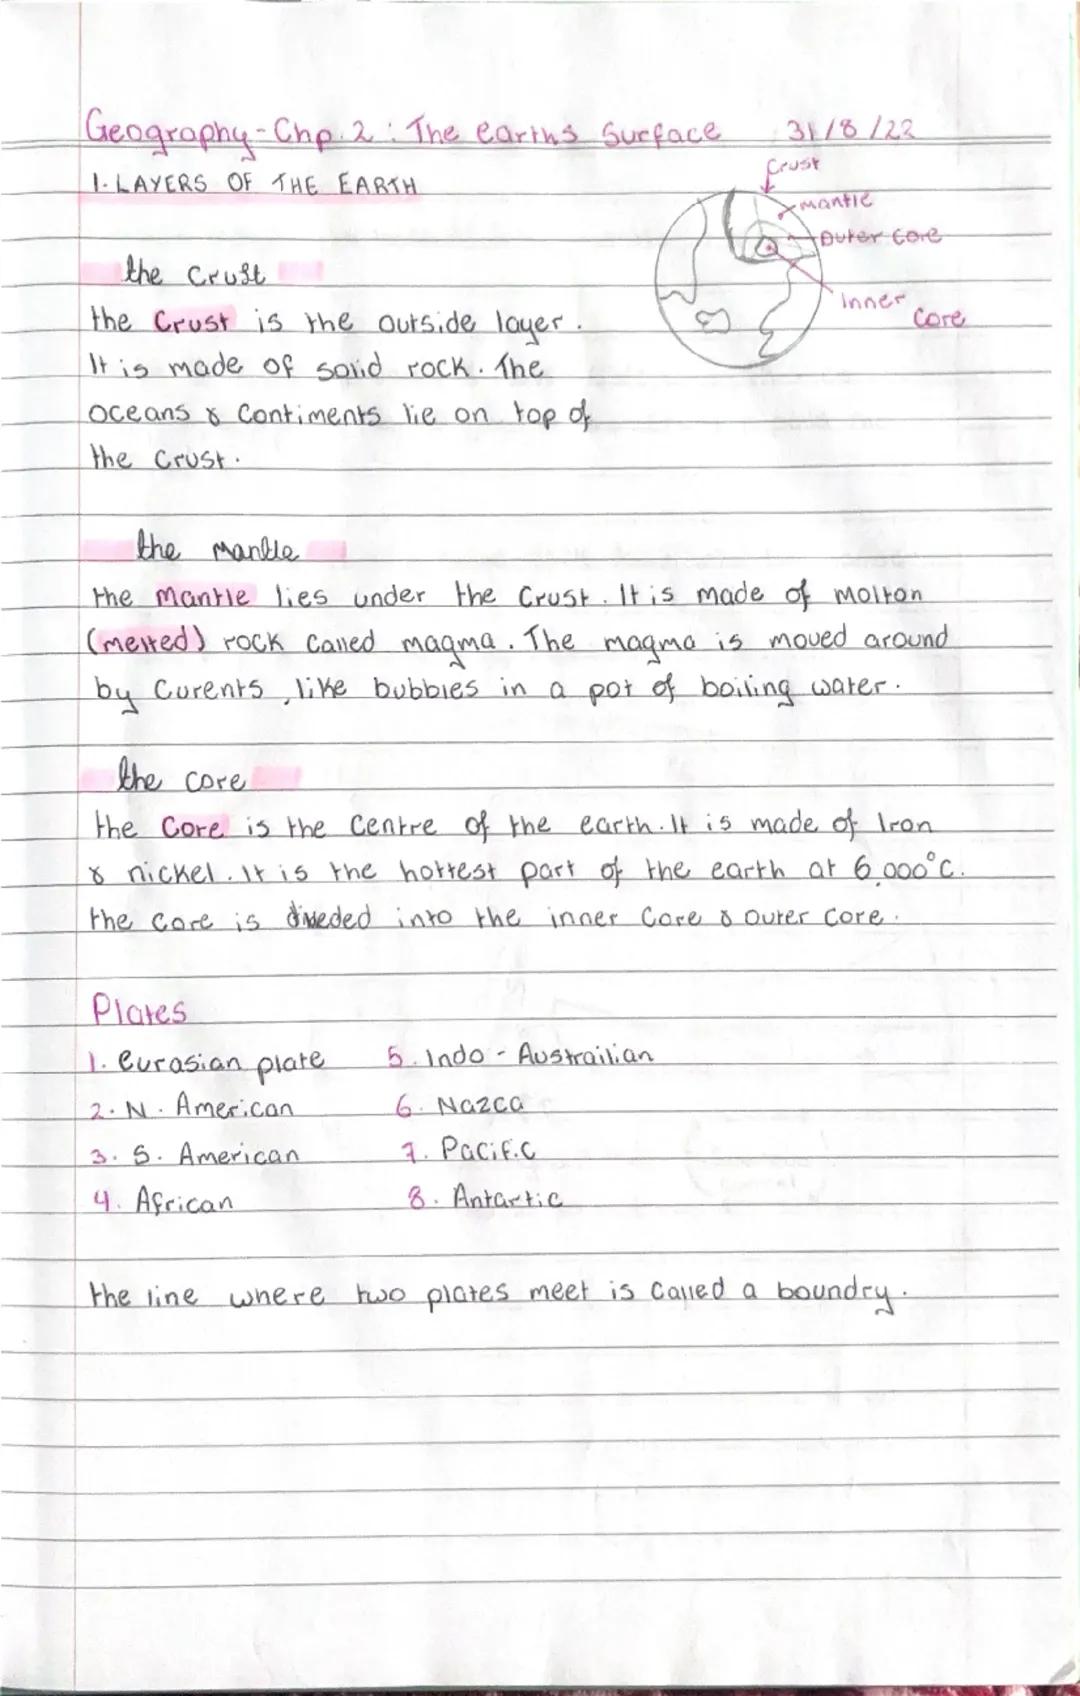 Geography - Chp. 2 : The earths Surface 31/8/22
1. LAYERS OF THE EARTH
Crust
mantle
Outer core
inner core
the Crust
the Crust is the outside layer.
It is made of solid rock. The
oceans & Contiments lie on top of
the Crust.
the mantle
the mantle lies under the Crust. It is made of molton
(melted) rock called magma. The magma is moved around
by Curents, like bubbles in a pot of boiling water.
the core
the Core is the Centre of the earth. It is made of Iron
& nickel. It is the hottest part of the earth at 6,000°C.
the Core is diveded into the inner Core & outer core.
Plates
1. Eurasian plate 5. Indo - Austrailian
2. N. American 6. Nazca
3. S. American 7. Pacific
4. African 8. Antartic
the line where two plates meet is called a boundry.